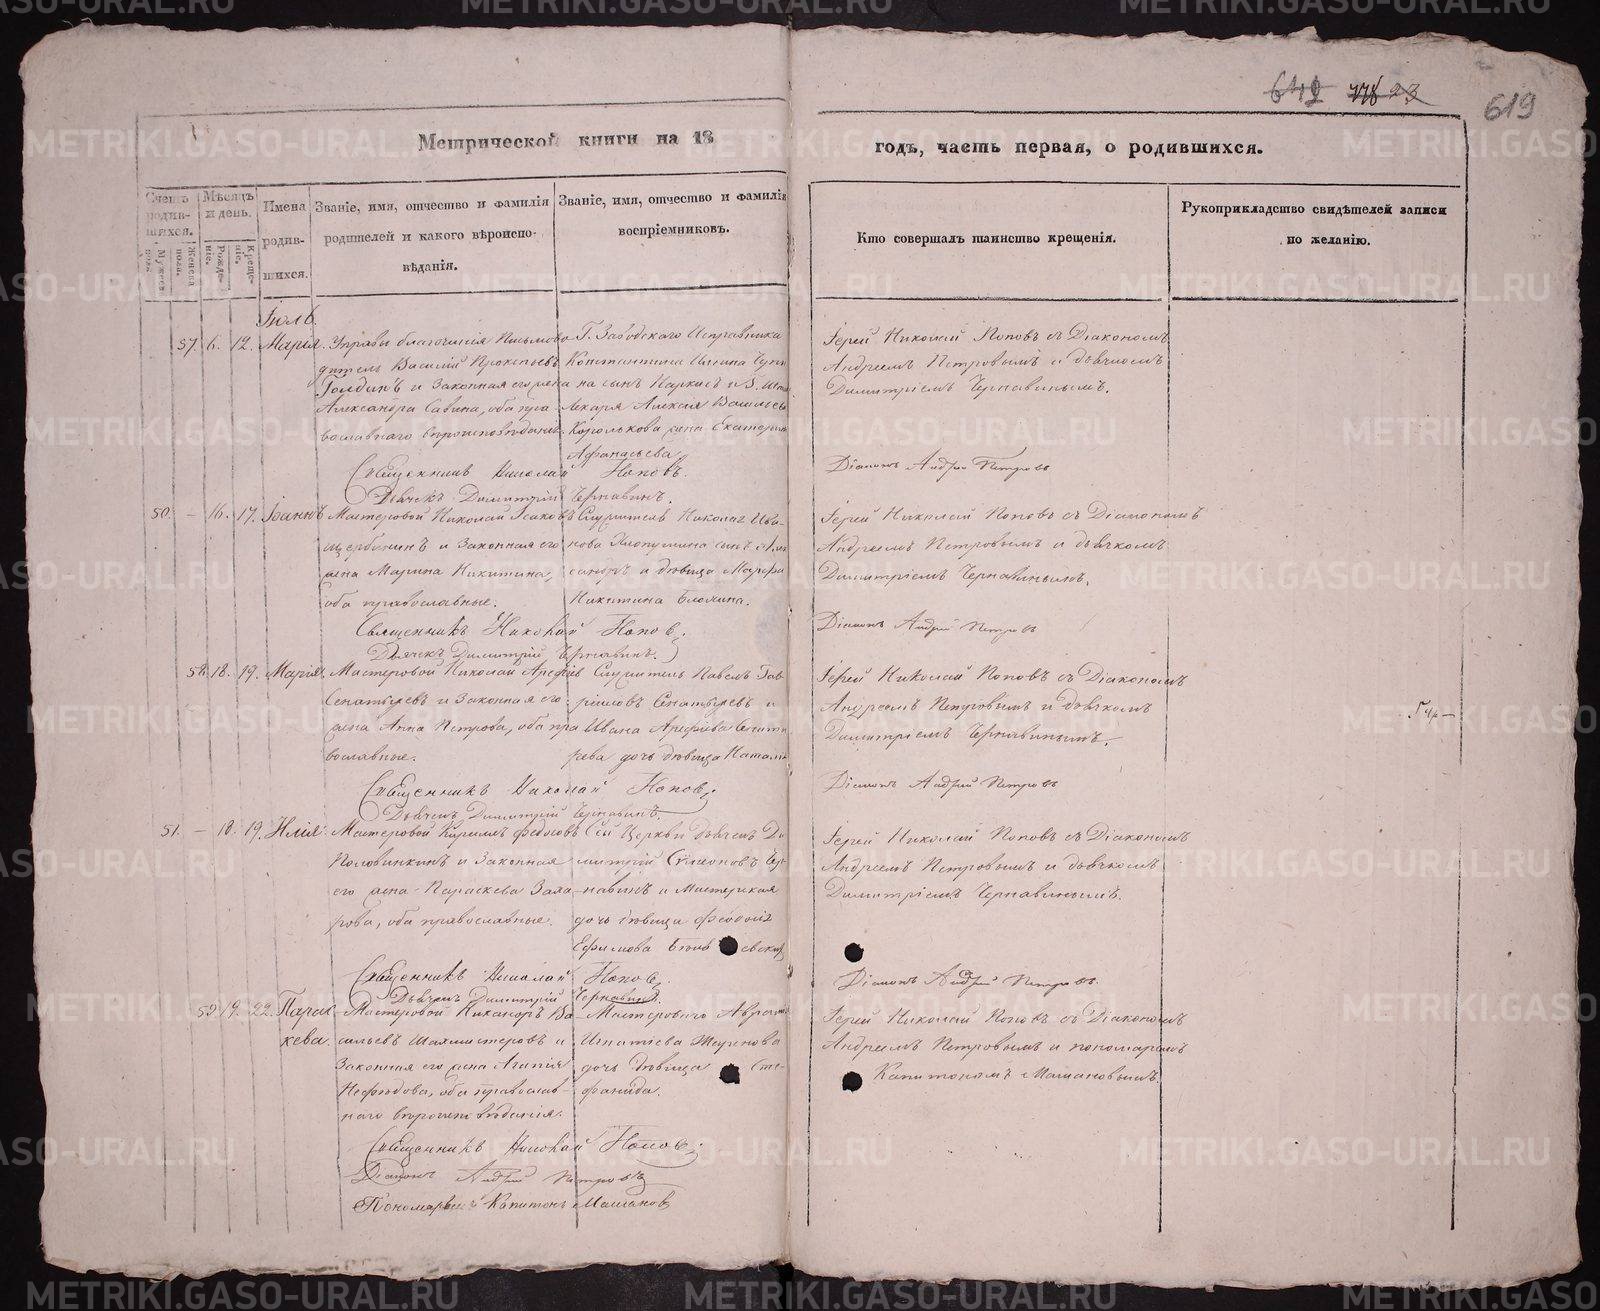 619
Метрической книги на 18
годъ, часть первая, о родившихся.
Счетъ родившихся.
Мѣсяцъ и день.
Имена родившихся.
Званіе, имя, отчество и фамилія родителей и какого вѣроисповѣданія.
Званіе, имя, отчество и фамилія воспріемниковъ.
Кто совершалъ таинство крещенія.
Рукоприкладство свидѣтелей записи по желанію.
Іюль.
57. 6. 12. Марія.
Управы благочинія Письмово-
дитель Василій Прокопьевъ
и Законная его жена
Александра Савина, оба пра-
вославнаго вѣроисповѣданія.
Г. Заводскаго Исправника
Константина
на сынъ
Лекаря Алексѣя Василье
Королькова жена Екатери
Афанасьева
Іерей Николай Поповъ съ Діакономъ
Андреемъ Петровымъ и дьячкомъ
Димитріемъ Чернавинымъ.
Священникъ Николай Поповъ.
Діаконъ Андрей Петровъ
Дьячекъ Димитрій Чернавинъ.
50. – 16. 17. Іоаннъ
Мастеровой Николай Исаковъ
Щербининъ и Законная его
жена Марина Никитина,
оба православные.
Служитель Николая Ива-
нова сынъ
и дѣвица Марфа
Никитина
Іерей Николай Поповъ съ Діакономъ
Андреемъ Петровымъ и дьячкомъ
Димитріемъ Чернавинымъ.
Священникъ Николай Поповъ.
Діаконъ Андрей Петровъ
Дьячекъ Димитрій Чернавинъ.
58. 18. 19. Марія.
Мастеровой Николай Арефіевъ
и Законная его
жена Анна Петрова, оба пра
вославные.
Служитель Павелъ Гав
риловъ и
Ивана Арефьева
дочь дѣвица Натал
Іерей Николай Поповъ съ Діакономъ
Андреемъ Петровымъ и дьячкомъ
Димитріемъ Чернавинымъ.
Священникъ Николай Поповъ.
Діаконъ Андрей Петровъ
Дьячекъ Димитрій Чернавинъ.
51. – 18. 19. Илія
Мастеровой Кирилъ Федосовъ
Половинкинъ и Законная
его жена Параскева Заха-
рова, оба православные.
Сей Церкви дьячекъ Ди
митрій Симеоновъ Чер-
навинъ и Мастерская
дочь дѣвица
Ефимова
Іерей Николай Поповъ съ Діакономъ
Андреемъ Петровымъ и дьячкомъ
Димитріемъ Чернавинымъ.
Священникъ Николай Поповъ.
Діаконъ Андрей Петровъ
Дьячекъ Димитрій Чернавинъ.
59. 19. 22. Парас
кева.
Мастеровой Никаноръ Ва-
сильевъ и
Законная его жена Агапія
оба православ-
наго вѣроисповѣданія.
Мастероваго
Игнатіева
дочь дѣвица Сте-
фанида.
Іерей Николай Поповъ съ Діакономъ
Андреемъ Петровымъ и пономаремъ
Капитономъ Машановымъ.
Священникъ Николай Поповъ.
Діаконъ Андрей Петровъ
Пономарь Капитонъ Машановъ
METRIKI.GASO-URAL.RU